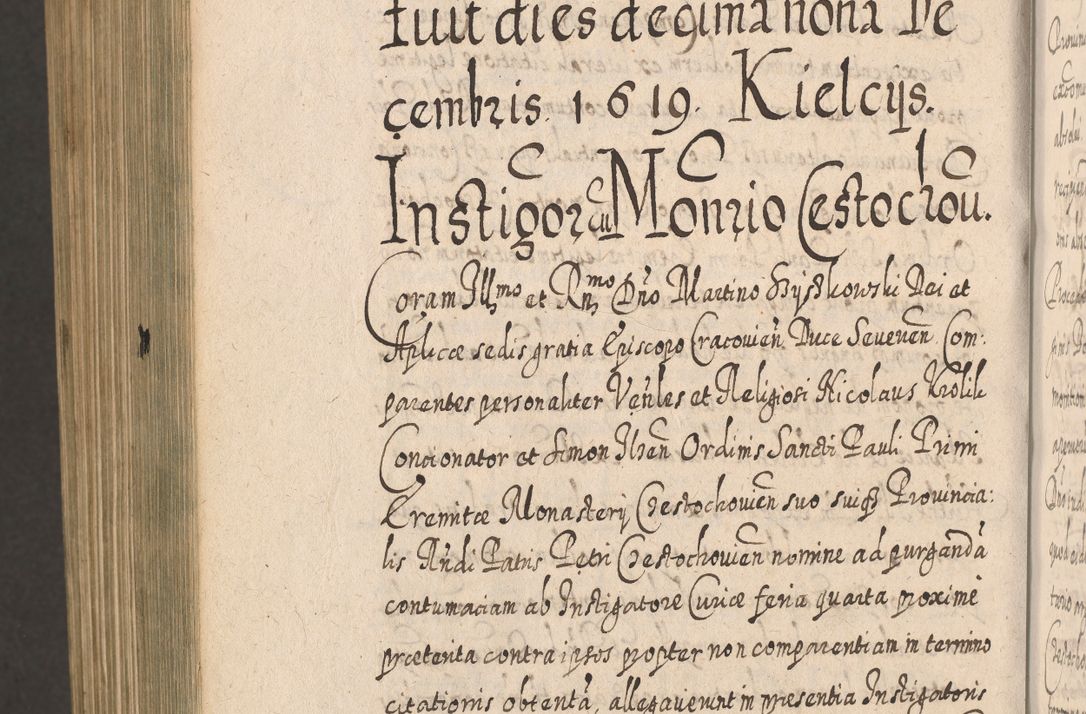 fuit dies decima nona De
cembris. 1619. Kielcijs.
Instigor cu Monrio Cestochou.
Coram Illmo et Rnmo Dno Martino Szyszkowski Dei et
Aplicæ sedis gratia Episcopo Cracovien Duce Severien. Com-
parentes personaliter Venles et Religiosi Nicolaus Krolik
Concionator et Simon Ordinis Sancti Pauli Primi
Eremitæ Monasterij Czestochovien suo suiq Provincia:
lis Rndi Patris Petri Czestochovien nomine ad purganda
contumaciam ab Instigatore Curiæ feria quarta proxime
præterita contra ipsos propter non comparentiam in termino
citationis obtenta, allegaverunt in præsentia Instigatoris